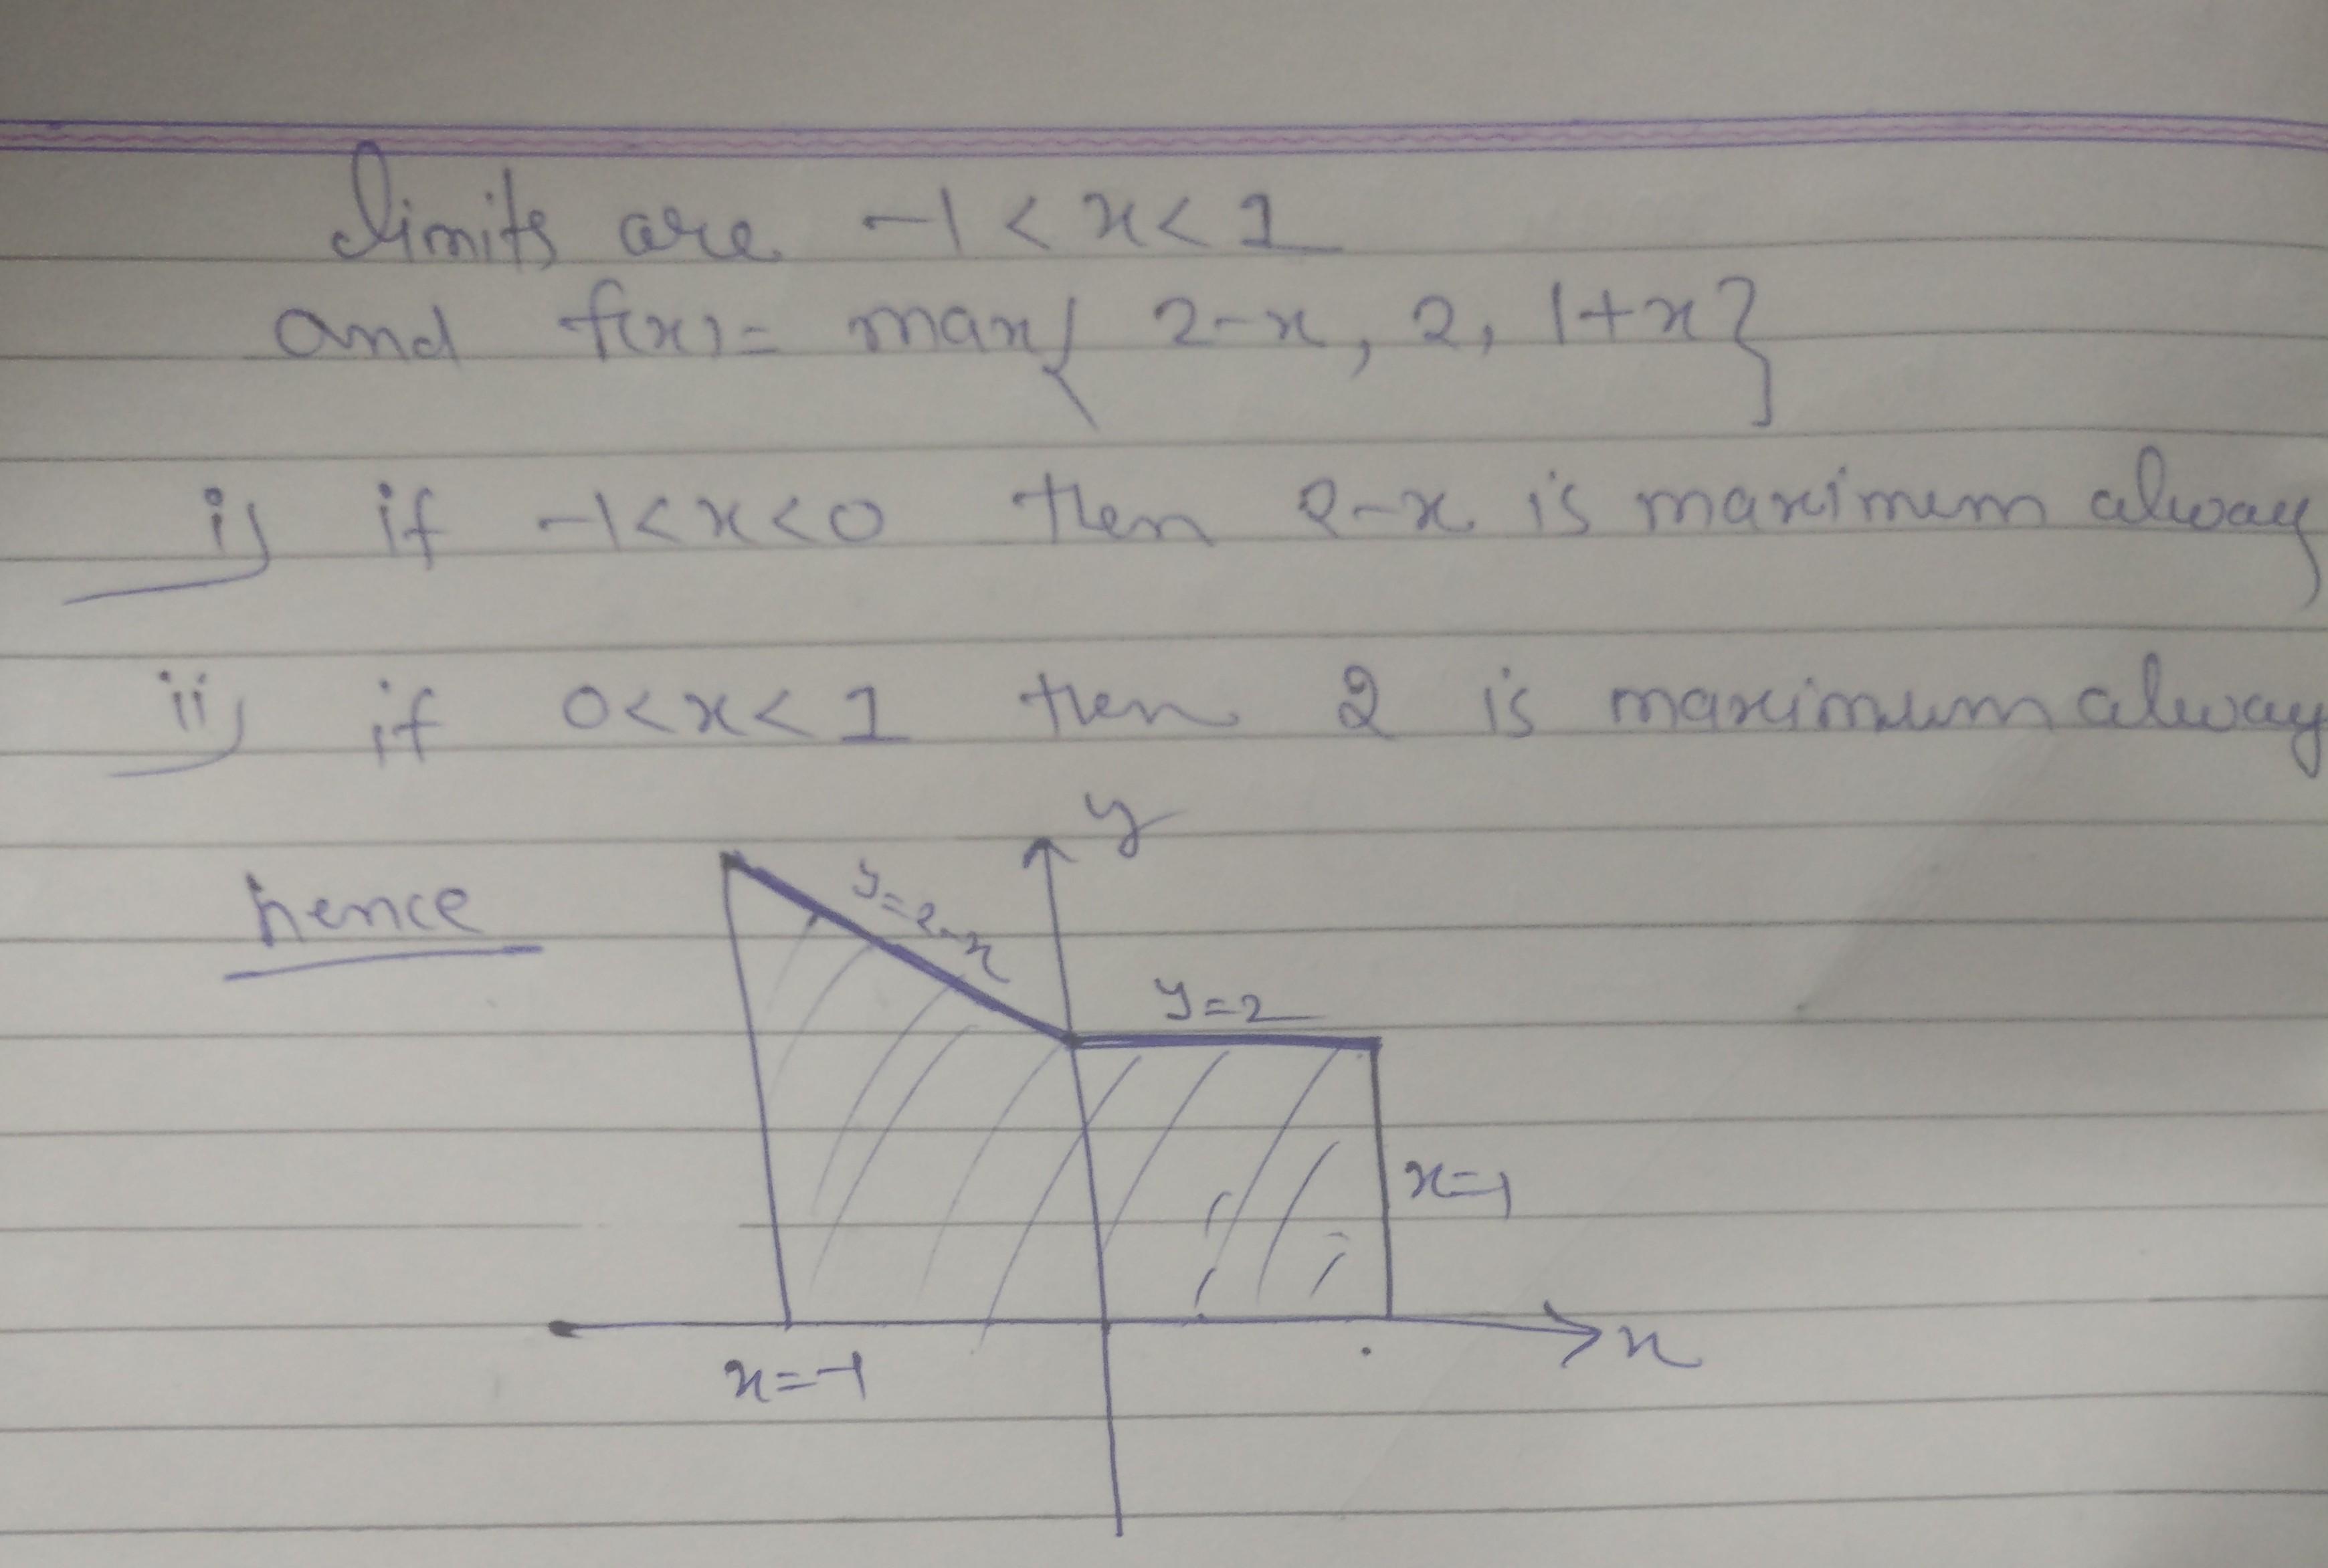 limits are -1 < x < 1
and f(x) = max{ 2-x, 2, 1+x}
i) if -1<x<0 then 2-x is maximum always
ii) if 0<x<1 then 2 is maximum always
y
hence
y=2-x
y=2
x=1
x
x=-1